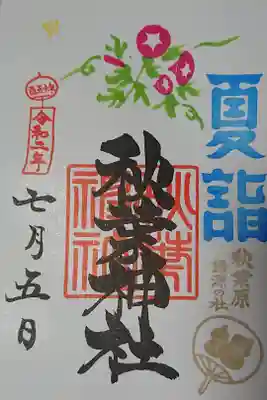 夏詣
秋葉原
鎮座の社
秋葉神社
令和二年
七月五日